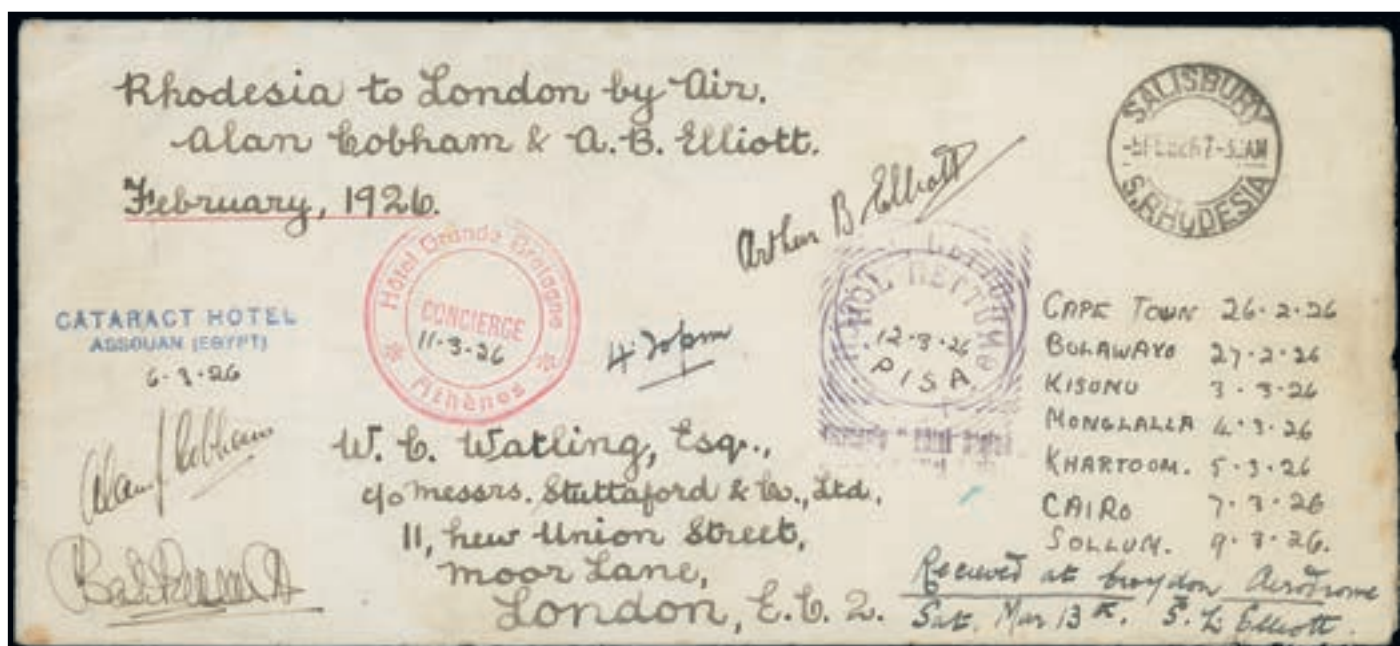 Rhodesia to London by Air.
Alan Cobham & A. B. Elliott.
February, 1926.
SALISBURY
S. RHODESIA
Arthur B Elliott
Hôtel Grande Bretagne
CONCIERGE
11-3-26
Athènes
4.20pm
HOTEL NETTUNO
12-3-26
PISA
CATARACT HOTEL
ASSOUAN (EGYPT)
6-3-26
Alan J Cobham
CAPE TOWN 26-2-26
BULAWAYO 27-2-26
KISUMU 3-3-26
MONGLALLA 4-3-26
KHARTOOM. 5-3-26
CAIRO 7-3-26
SOLLUM. 9-3-26.
W. C. Watling, Esq.,
c/o Messrs. Stuttaford & Co., Ltd,
11, New Union Street,
Moor Lane,
London, E.C.2.
Recieved at Croydon Aerodrome
Sat. Mar 13th. S. L Elliott